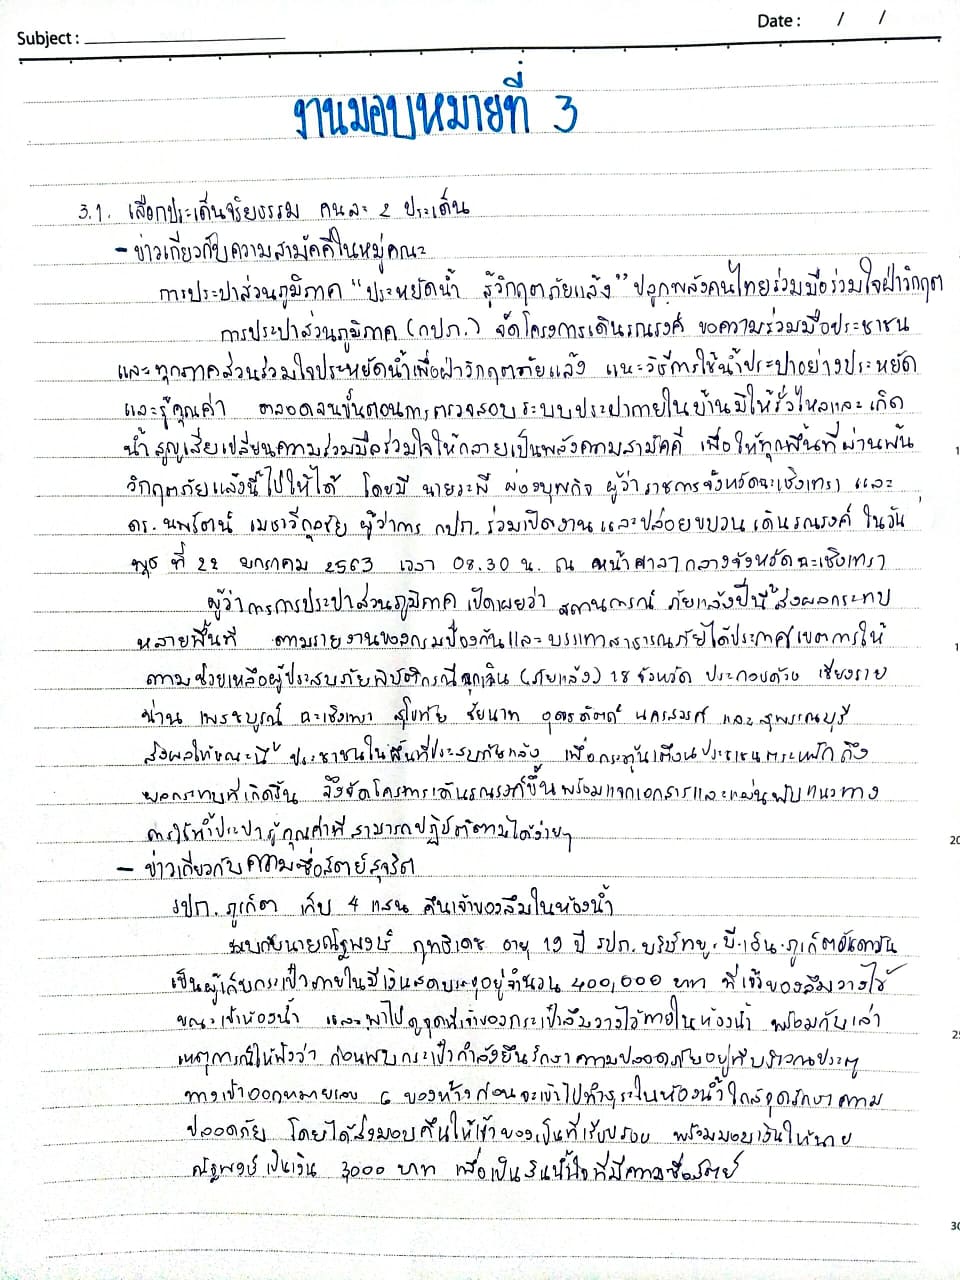 Subject :
Date : / /
งานมอบหมายที่ 3
3.1. เลือกประเด็นจริยธรรม คนละ 2 ประเด็น
- ข่าวเกี่ยวกับความสามัคคีในหมู่คณะ
การประปาส่วนภูมิภาค "ประหยัดน้ำ สู้วิกฤตภัยแล้ง" ปลุกพลังคนไทยร่วมมือร่วมใจฝ่าวิกฤต
การประปาส่วนภูมิภาค (กปภ.) จัดโครงการเดินรณรงค์ ขอความร่วมมือประชาชน
และทุกภาคส่วนร่วมใจประหยัดน้ำเพื่อฝ่าวิกฤตภัยแล้ง แนะวิธีการใช้น้ำประปาอย่างประหยัด
และรู้คุณค่า ตลอดจนขั้นตอนการตรวจสอบระบบประปาภายในบ้านมิให้รั่วไหลและเกิด
น้ำสูญเสียเปลี่ยนความร่วมมือร่วมใจให้กลายเป็นพลังความสามัคคี เพื่อให้ทุกพื้นที่ผ่านพ้น
วิกฤตภัยแล้งนี้ไปให้ได้ โดยมี นายระพี ผ่องบุพกิจ ผู้ว่าราชการจังหวัดฉะเชิงเทรา และ
ดร. นพรัตน์ เมธาวีกุลชัย ผู้ว่าการ กปภ. ร่วมเปิดงานและปล่อยขบวนเดินรณรงค์ ในวัน
พุธ ที่ 22 มกราคม 2563 เวลา 08.30 น. ณ หน้าศาลากลางจังหวัดฉะเชิงเทรา
ผู้ว่าการการประปาส่วนภูมิภาค เปิดเผยว่า สถานการณ์ ภัยแล้งปีนี้ส่งผลกระทบ
หลายพื้นที่ ตามรายงานของกรมป้องกันและบรรเทาสาธารณภัยได้ประกาศเขตการให้
ความช่วยเหลือผู้ประสบภัยพิบัติกรณีฉุกเฉิน (ภัยแล้ง) 18 จังหวัด ประกอบด้วย เชียงราย
น่าน เพชรบูรณ์ ฉะเชิงเทรา สุโขทัย ชัยนาท อุตรดิตถ์ นครสวรค์ และสุพรรณบุรี
ส่งผลให้ขณะนี้ ประชาชนในพื้นที่ประสบภัยแล้ง เพื่อกระตุ้นเตือนประชาชนตระหนักถึง
ผลกระทบที่เกิดขึ้น จึงจัดโครงการเดินรณรงค์ขึ้นพร้อมแจกเอกสารและแผ่นพับแนวทาง
การใช้น้ำประปารู้คุณค่าที่สามารถปฏิบัติตามได้ง่ายๆ
- ข่าวเกี่ยวกับความซื่อสัตย์สุจริต
รปภ. ภูเก็ต เก็บ 4 แสน คืนเจ้าของลืมในห้องน้ำ
พบกับนายณัฐพงษ์ ฤทธิเดช อายุ 19 ปี รปภ. บริษัท บี.เอ็น.ภูเก็ตอันดามัน
เป็นผู้เก็บกระเป๋าภายในมีเงินสดบรรจุอยู่จำนวน 400,000 บาท ที่เจ้าของลืมวางไว้
ขณะเข้าห้องน้ำ และพาไปดูจุดที่เจ้าของกระเป๋าลืมวางไว้ภายในห้องน้ำ พร้อมกับเล่า
เหตุการณ์ให้ฟังว่า ก่อนพบกระเป๋ากำลังยืนรักษาความปลอดภัยอยู่ที่บริเวณประตู
ทางเข้าออกหมายเลข 6 ของห้างก่อนจะเข้าไปทำธุระในห้องน้ำใกล้จุดรักษาความ
ปลอดภัย โดยได้ส่งมอบคืนให้เจ้าของเป็นที่เรียบร้อย พร้อมมอบเงินให้นาย
ณัฐพงษ์ เป็นเงิน 3000 บาท เพื่อเป็นสินน้ำใจที่มีความซื่อสัตย์
20
25
30